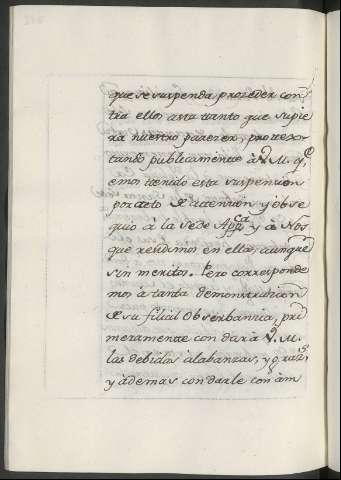 que se suspenda, prozeder con-
tra ellos asta tanto que supie
ra nuestro parezer, protex-
tando publicamente à V. M. q.e
emos tenido esta suspenzion
por acto de attenzion, y obse
quio à la Sede App.ca y à Nos
que residimos en ella, aunque
sin meritos. Pero correspond
mos à tanta demonstrazion
de su filial Obserbanzia, pri
meramente con dar à V. M.
las debidas alabanzas, y gra.s,
y àdemas con darle con àm